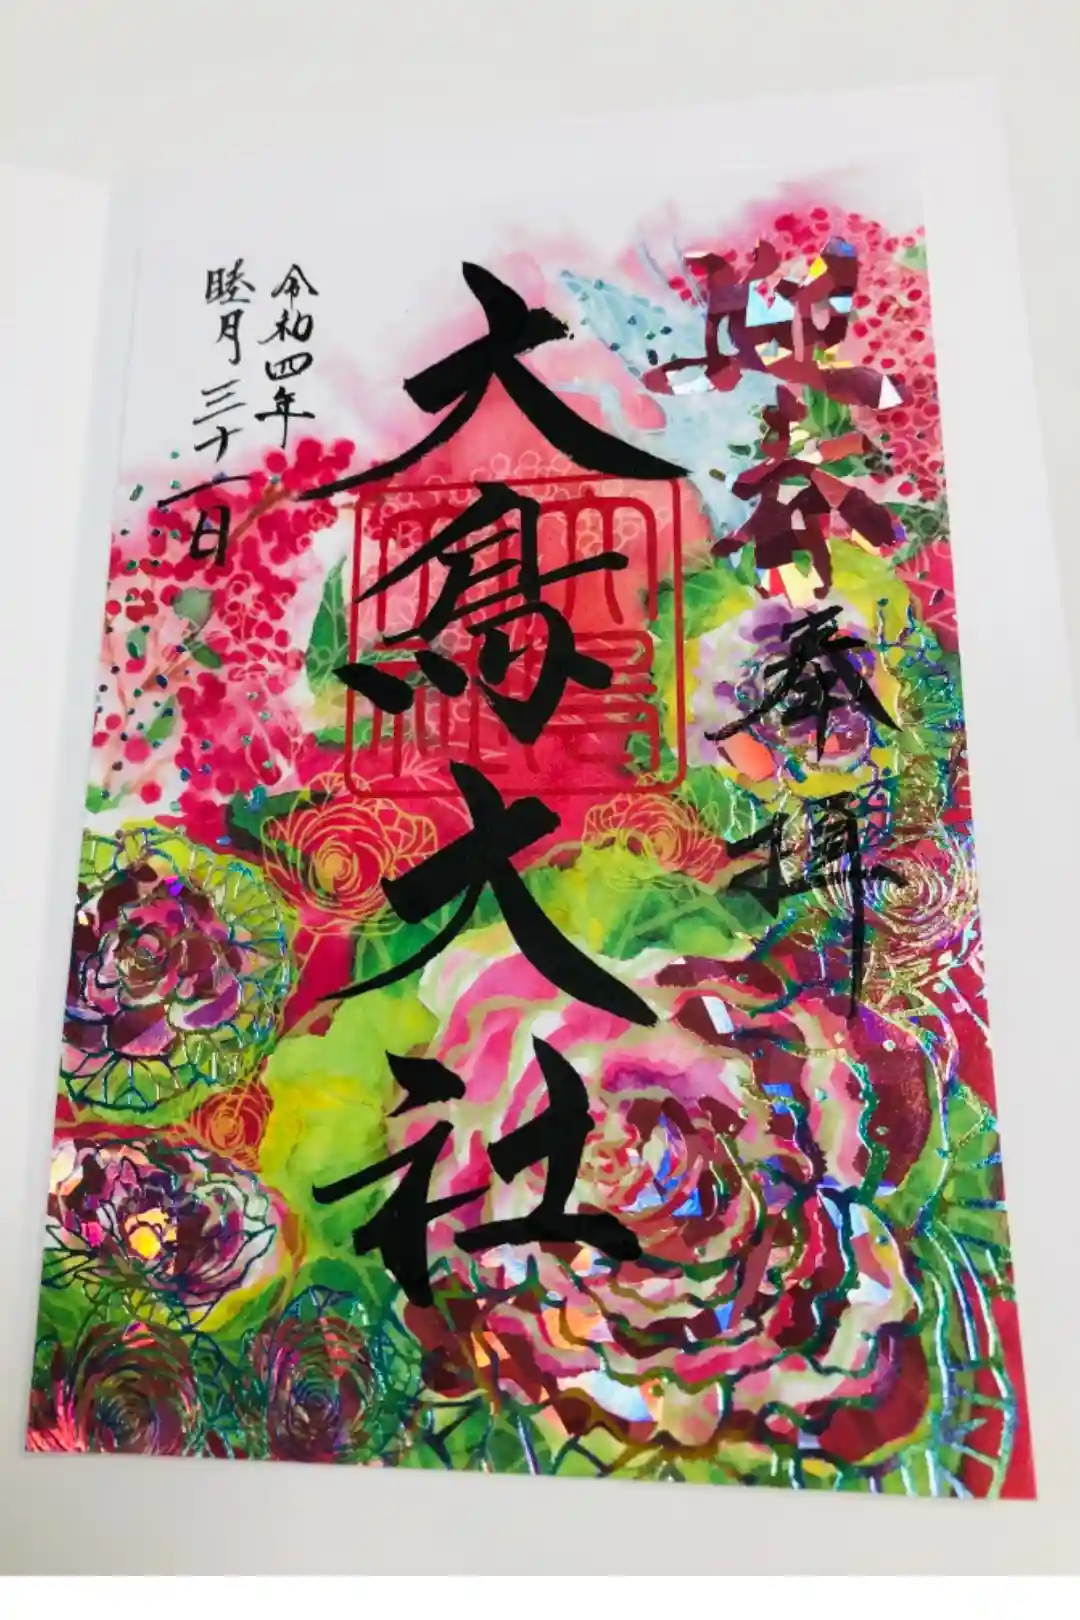 迎春
奉拝
大鳥大社
大鳥
大社
令和四年
睦月三十一日